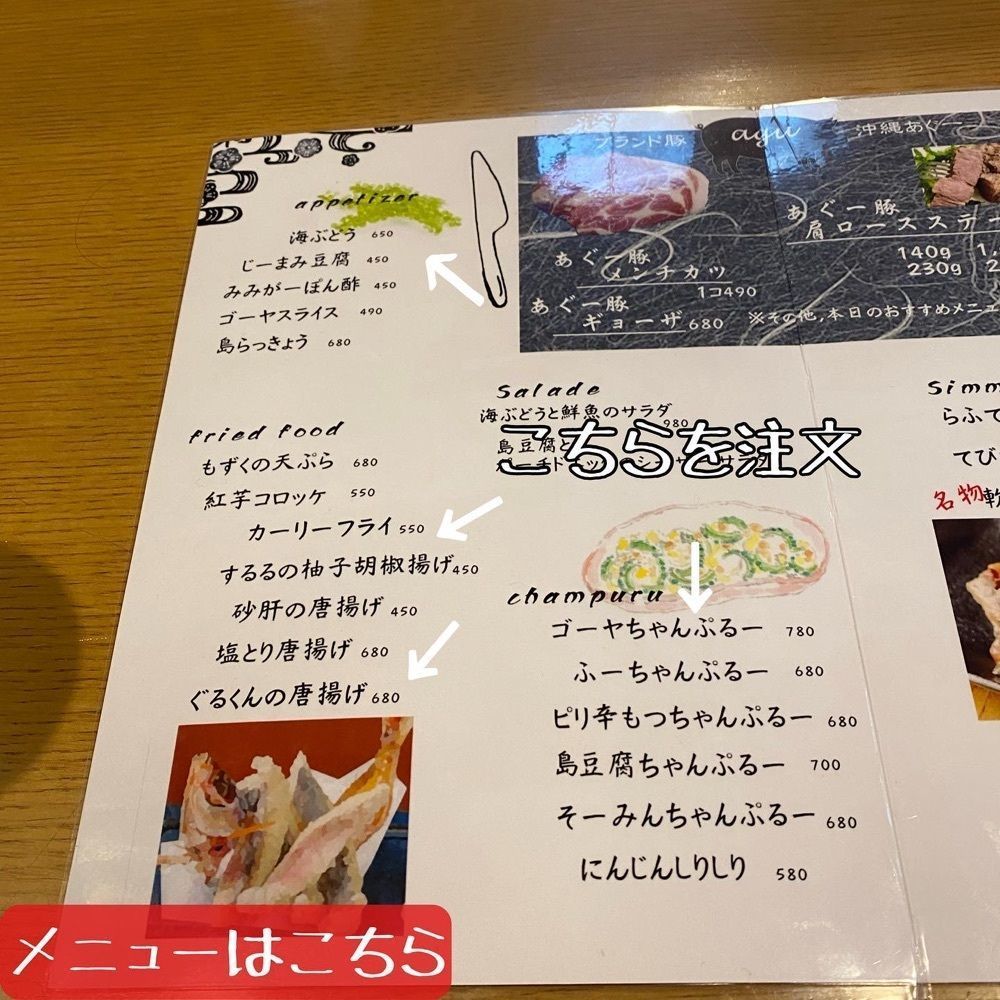 appetizer
海ぶどう 650
じーまみ豆腐 450
みみがーぽん酢 450
ゴーヤスライス 490
島らっきょう 680
ブランド豚
agu
沖縄あぐー
あぐー豚
メンチカツ
1コ490
あぐー豚
ギョーザ680
あぐー豚
肩ロースステ
140g 1,
230g 2
※その他,本日のおすすめメニュ
fried food
もずくの天ぷら 680
紅芋コロッケ 550
カーリーフライ 550
するるの柚子胡椒揚げ450
砂肝の唐揚げ 450
塩とり唐揚げ 680
ぐるくんの唐揚げ 680
Salade
海ぶどうと鮮魚のサラダ
980
島豆腐と
こちらを注文
champuru
ゴーヤちゃんぷるー 780
ふーちゃんぷるー 680
ピリ辛もつちゃんぷるー 680
島豆腐ちゃんぷるー 700
そーみんちゃんぷるー 680
にんじんしりしり 580
Simm
らふて
てび
名物軟
メニューはこちら